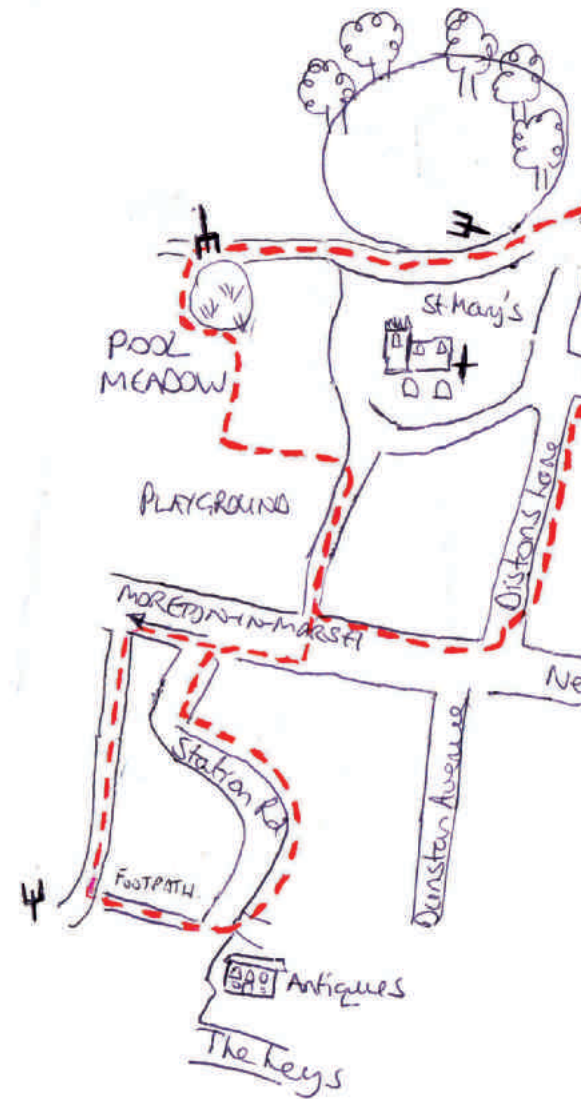 St Mary's
POOL
MEADOW
PLAYGROUND
Distons Lane
MORETON-IN-MARSH
Ne
Station Rd
Dunstan Avenue
FOOTPATH.
Antiques
The Leys